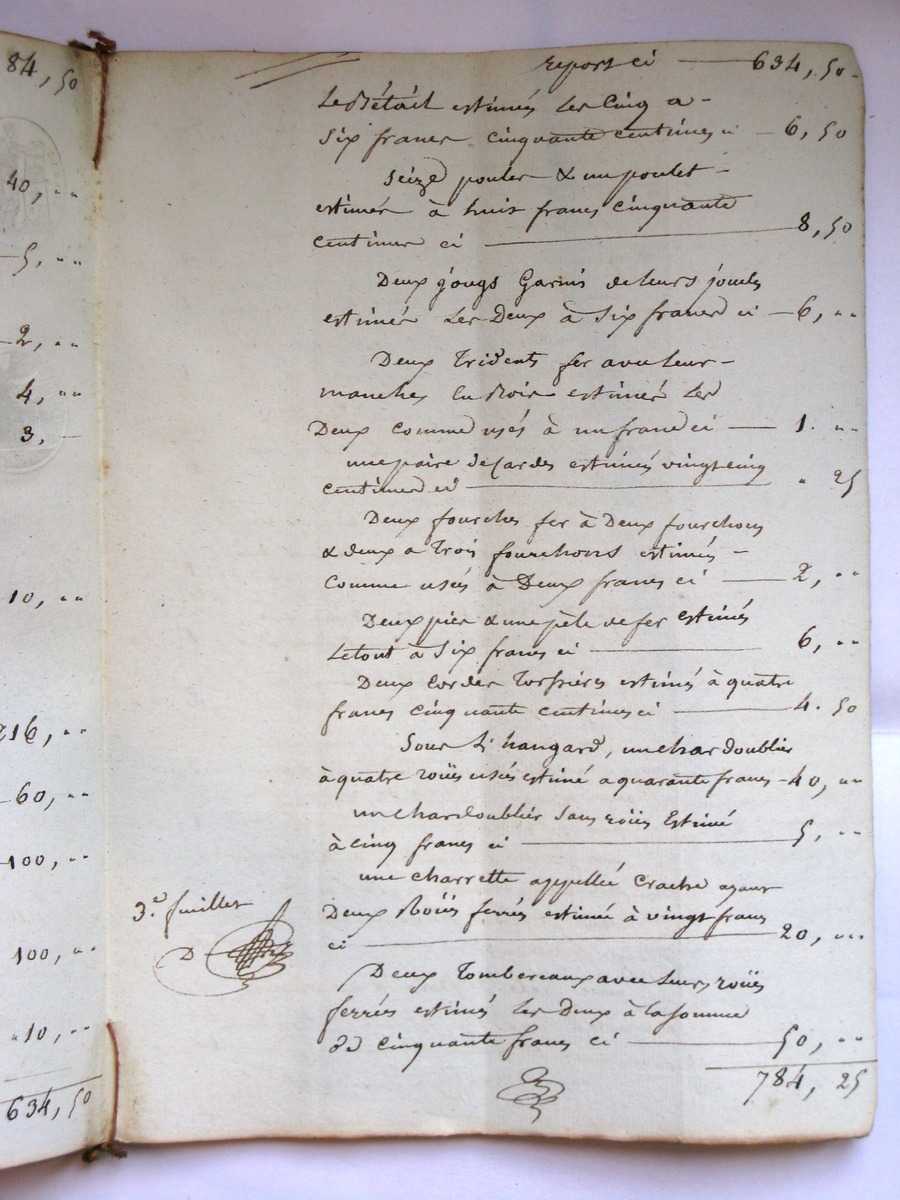 84, 50
40, "
5, "
2, "
4, "
3, —
10, "
216, "
60, "
100, "
100, "
10, "
634, 50
report ci — 634, 50
estimés les cinq a
six francs cinquante centimes ci — 6, 50
Seize poules & un poulet
estimés à huit francs cinquante
centimes ci — 8, 50
Deux jougs Garnis de leurs joucles
estimés Les Deux à Six francs ci — 6, "
Deux Tridents fer avec leur
manches en Bois estimés Les
Deux comme usés à un franc ci — 1. "
une paire de Cardes estimés vingt cinq
centimes ci — " 25
Deux fourches fer à Deux fourchons
& deux a Trois fourchons estimés
Comme usés à Deux francs ci — 2, "
Deux pics & une pèle de fer estimés
Le tout à Six francs ci — 6, "
Deux Cordes estimés à quatre
francs cinquante centimes ci — 4. 50
Sous L'hangard, un char doublier
à quatre roües usés estimé a quarante francs — 40, "
un char doublier sans roües Estimé
à cinq francs ci — 5, "
une charrette appellée ayant
Deux Roües ferrés estimée à vingt francs
ci — 20, "
Deux Tombereaux avec leurs roües
ferrés estimés Les Deux à la somme
de cinquante francs ci — 50, "
784, 25
3.e feuillet
D